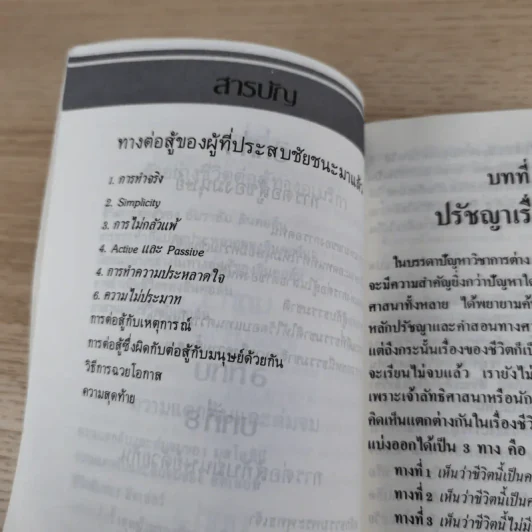 สารบัญ
ทางต่อสู้ของผู้ที่ประสบชัยชนะมาแล้ว
1. การทำจริง
2. Simplicity
3. การไม่กลัวแพ้
4. Active และ Passive
4. การทำความประหลาดใจ
6. ความไม่ประมาท
การต่อสู้กับเหตุการณ์
การต่อสู้ซึ่งผิดกับต่อสู้กับมนุษย์ด้วยกัน
วิธีการฉวยโอกาส
ความสุดท้าย
บทที่
ปรัชญาเรื่
ในบรรดาปัญหาวิชาการต่าง
จะมีความสำคัญยิ่งกว่าปัญหาใด
ศาสนาทั้งหลาย ได้พยายามค้น
หลักปรัชญาและคำสอนทางศา
แต่ถึงกระนั้นเรื่องของชีวิตก็เป็
จะเรียนไม่จบแล้ว เรายังไม่
เพราะเจ้าลัทธิศาสนาหรือนัก
คิดเห็นแตกต่างกันในเรื่องชีวิ
แบ่งออกได้เป็น 3 ทาง คือ
ทางที่ 1 เห็นว่าชีวิตนี้เป็นค
ทางที่ 2 เห็นว่าชีวิตนี้เป็น
ทางที่ 3 เห็นว่าชีวิตนี้ไม่